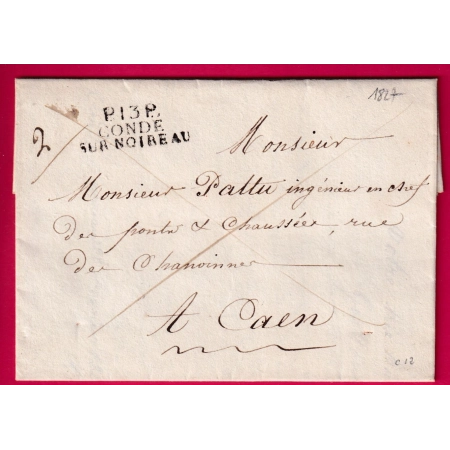 1827
P.13.P.
CONDÉ
SUR-NOIREAU
2
Monsieur
Monsieur Pattu ingénieur en chef
des ponts & chaussées, rue
des Chanoinnes
A Caen
C 12